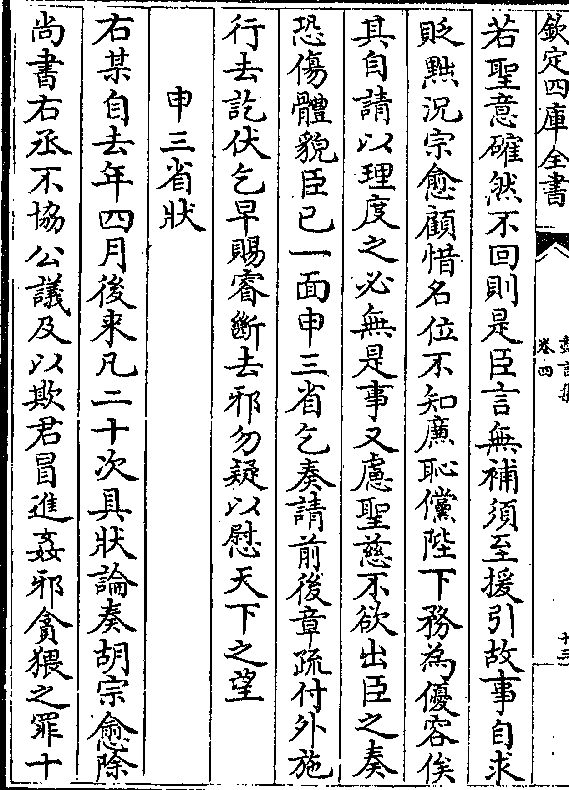 欽定四庫全書
卷四
若聖意確然不回則是臣言無補須至援引故事自求
貶黜況宗愈顧惜名位不知廉恥儻陛下務為優容俟
其自請以理度之必無是事又慮聖慈不欲出臣之奏
恐傷體貌臣已一面申三省乞奏請前後章疏付外施
行去訖伏乞早賜睿斷去邪勿疑以慰天下之望
申三省狀
右某自去年四月後来凡二十次具狀論奏胡宗愈除
尚書右丞不協公議及以欺君冒進姦邪貪猥之罪十